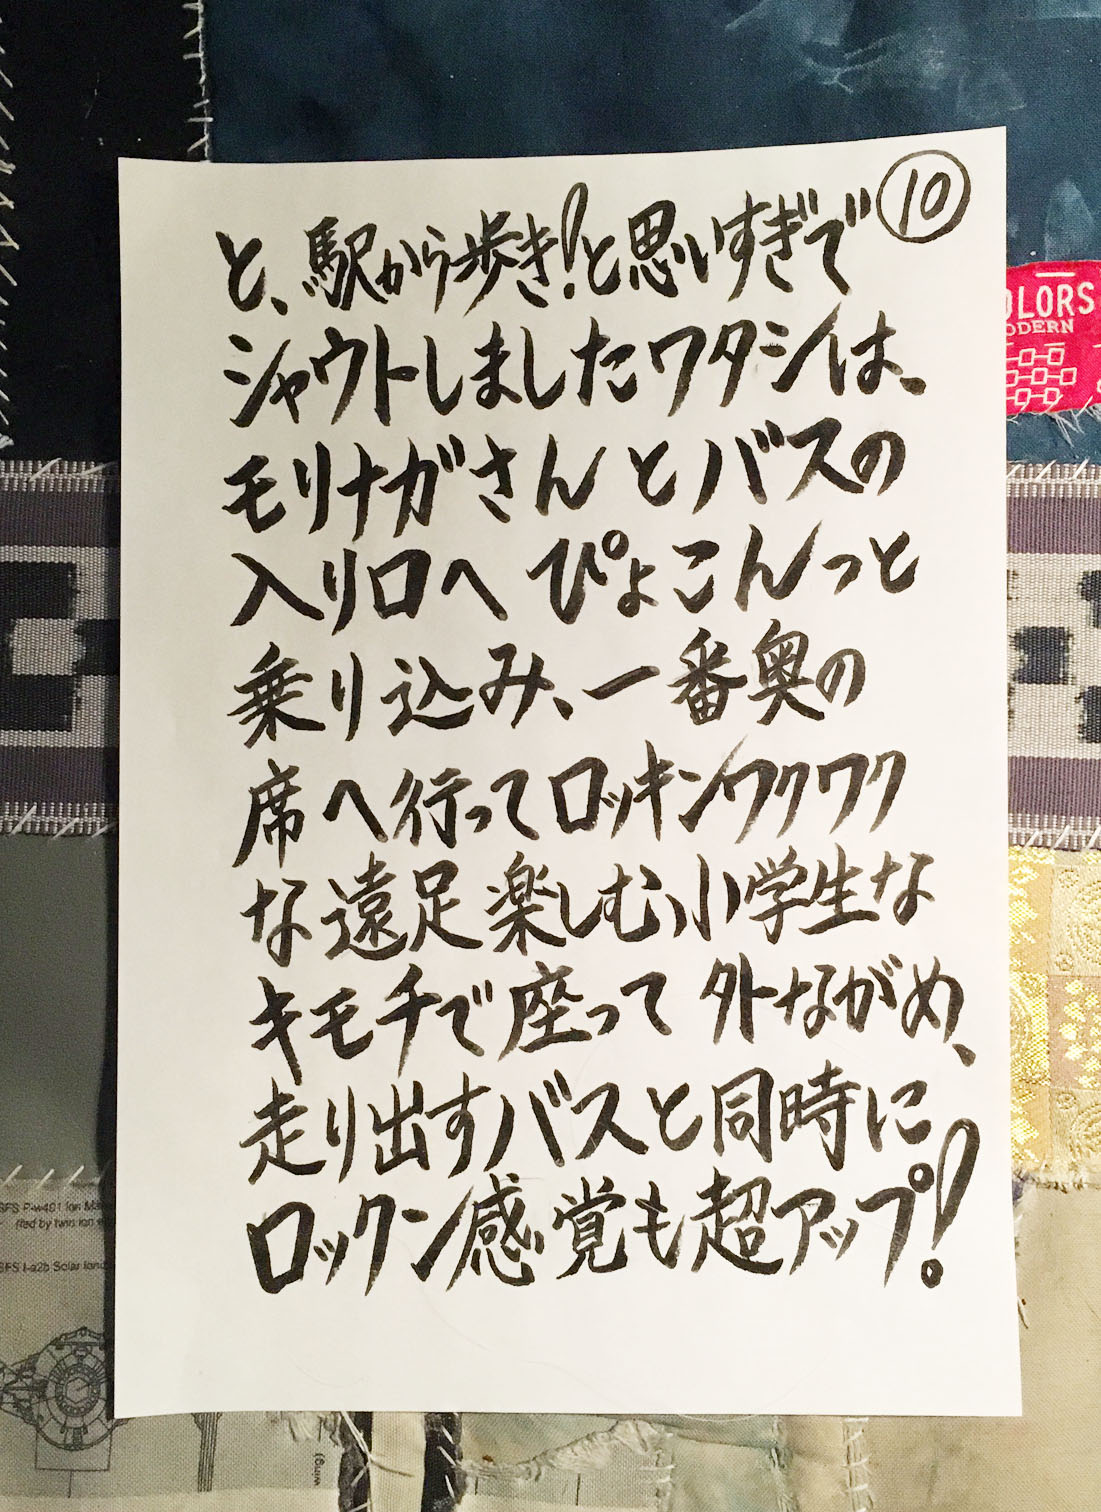 ⑩
と、駅から歩き!と思いすぎで
シャウトしましたワタシは、
モリナガさんとバスの
入り口へ ぴょこんっと
乗り込み、一番奥の
席へ行ってロッキンワクワク
な遠足楽しむ、小学生な
キモチで座って 外ながめ、
走り出すバスと同時に
ロックン感覚も超アップ!
OLORS
ODERN
SFS P-w401 Ion Ma
fied by twin ion
SFS I-a2b Solar Ionc
wing